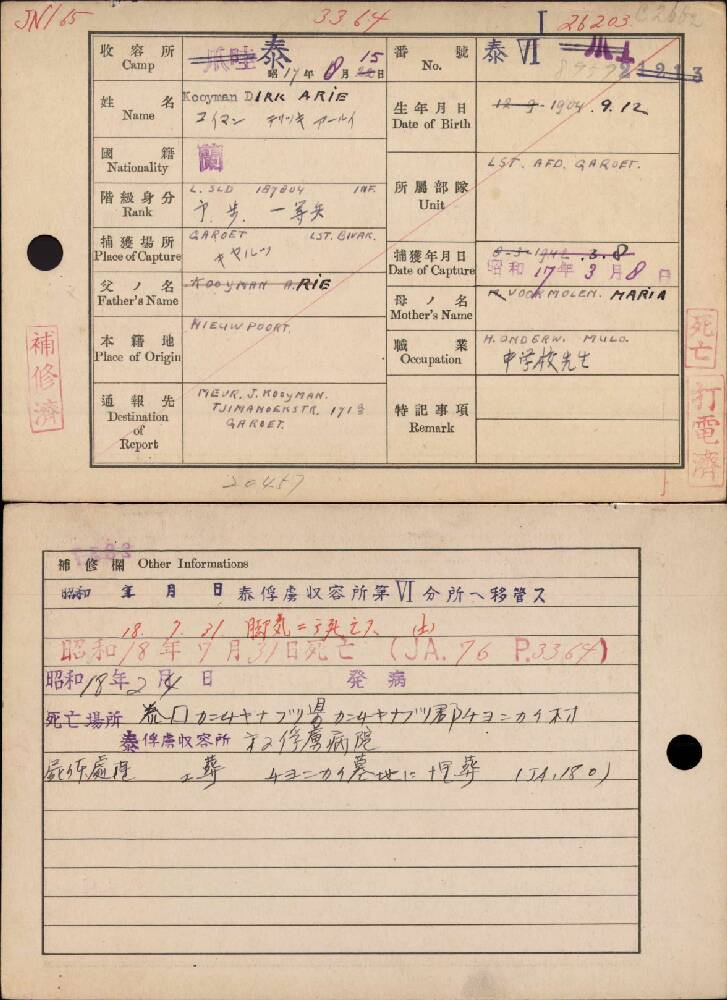 JN165 3364 I 26203
收容所 Camp 爪哇 泰 昭17年8月15日
番號 No. 泰 VI 21213
姓名 Name Kooyman DIRK ARIE
コイマン
生年月日 Date of Birth 12-9-1904.9.12
國籍 Nationality 蘭
階級身分 Rank L. SLD 187804 INF.
一等兵
所屬部隊 Unit LST. AFD. GAROET.
捕獲場所 Place of Capture GAROET LST. BIVAK.
捕獲年月日 Date of Capture 8-3-1942.3.8
昭和17年3月8日
父ノ名 Father's Name KOOYMAN ARIE
母ノ名 Mother's Name VOORMOLEN. MARIA
本籍地 Place of Origin NIEUWPOORT.
職業 Occupation H. ONDERW. MULO.
中学校先生
通報先 Destination of Report MEVR. J. KOOYMAN.
TJIMANOEKSTR. 171
GAROET.
特記事項 Remark
補修濟
死亡
打電濟
20457
補修欄 Other Informations
昭和 年 月 日 泰俘虜収容所第VI分所ヘ移管ス
18. 7. 31 脚気ニテ死亡ス
昭和18年7月31日死亡 (JA.76 P.3364)
昭和18年2月4日 発病
死亡場所 泰国カニャナブリ県カニャナブリ郡チョンカイ村
泰俘虜収容所 俘虜病院
屍体處理 土葬 チョンカイ墓地に埋葬 (JA.180)